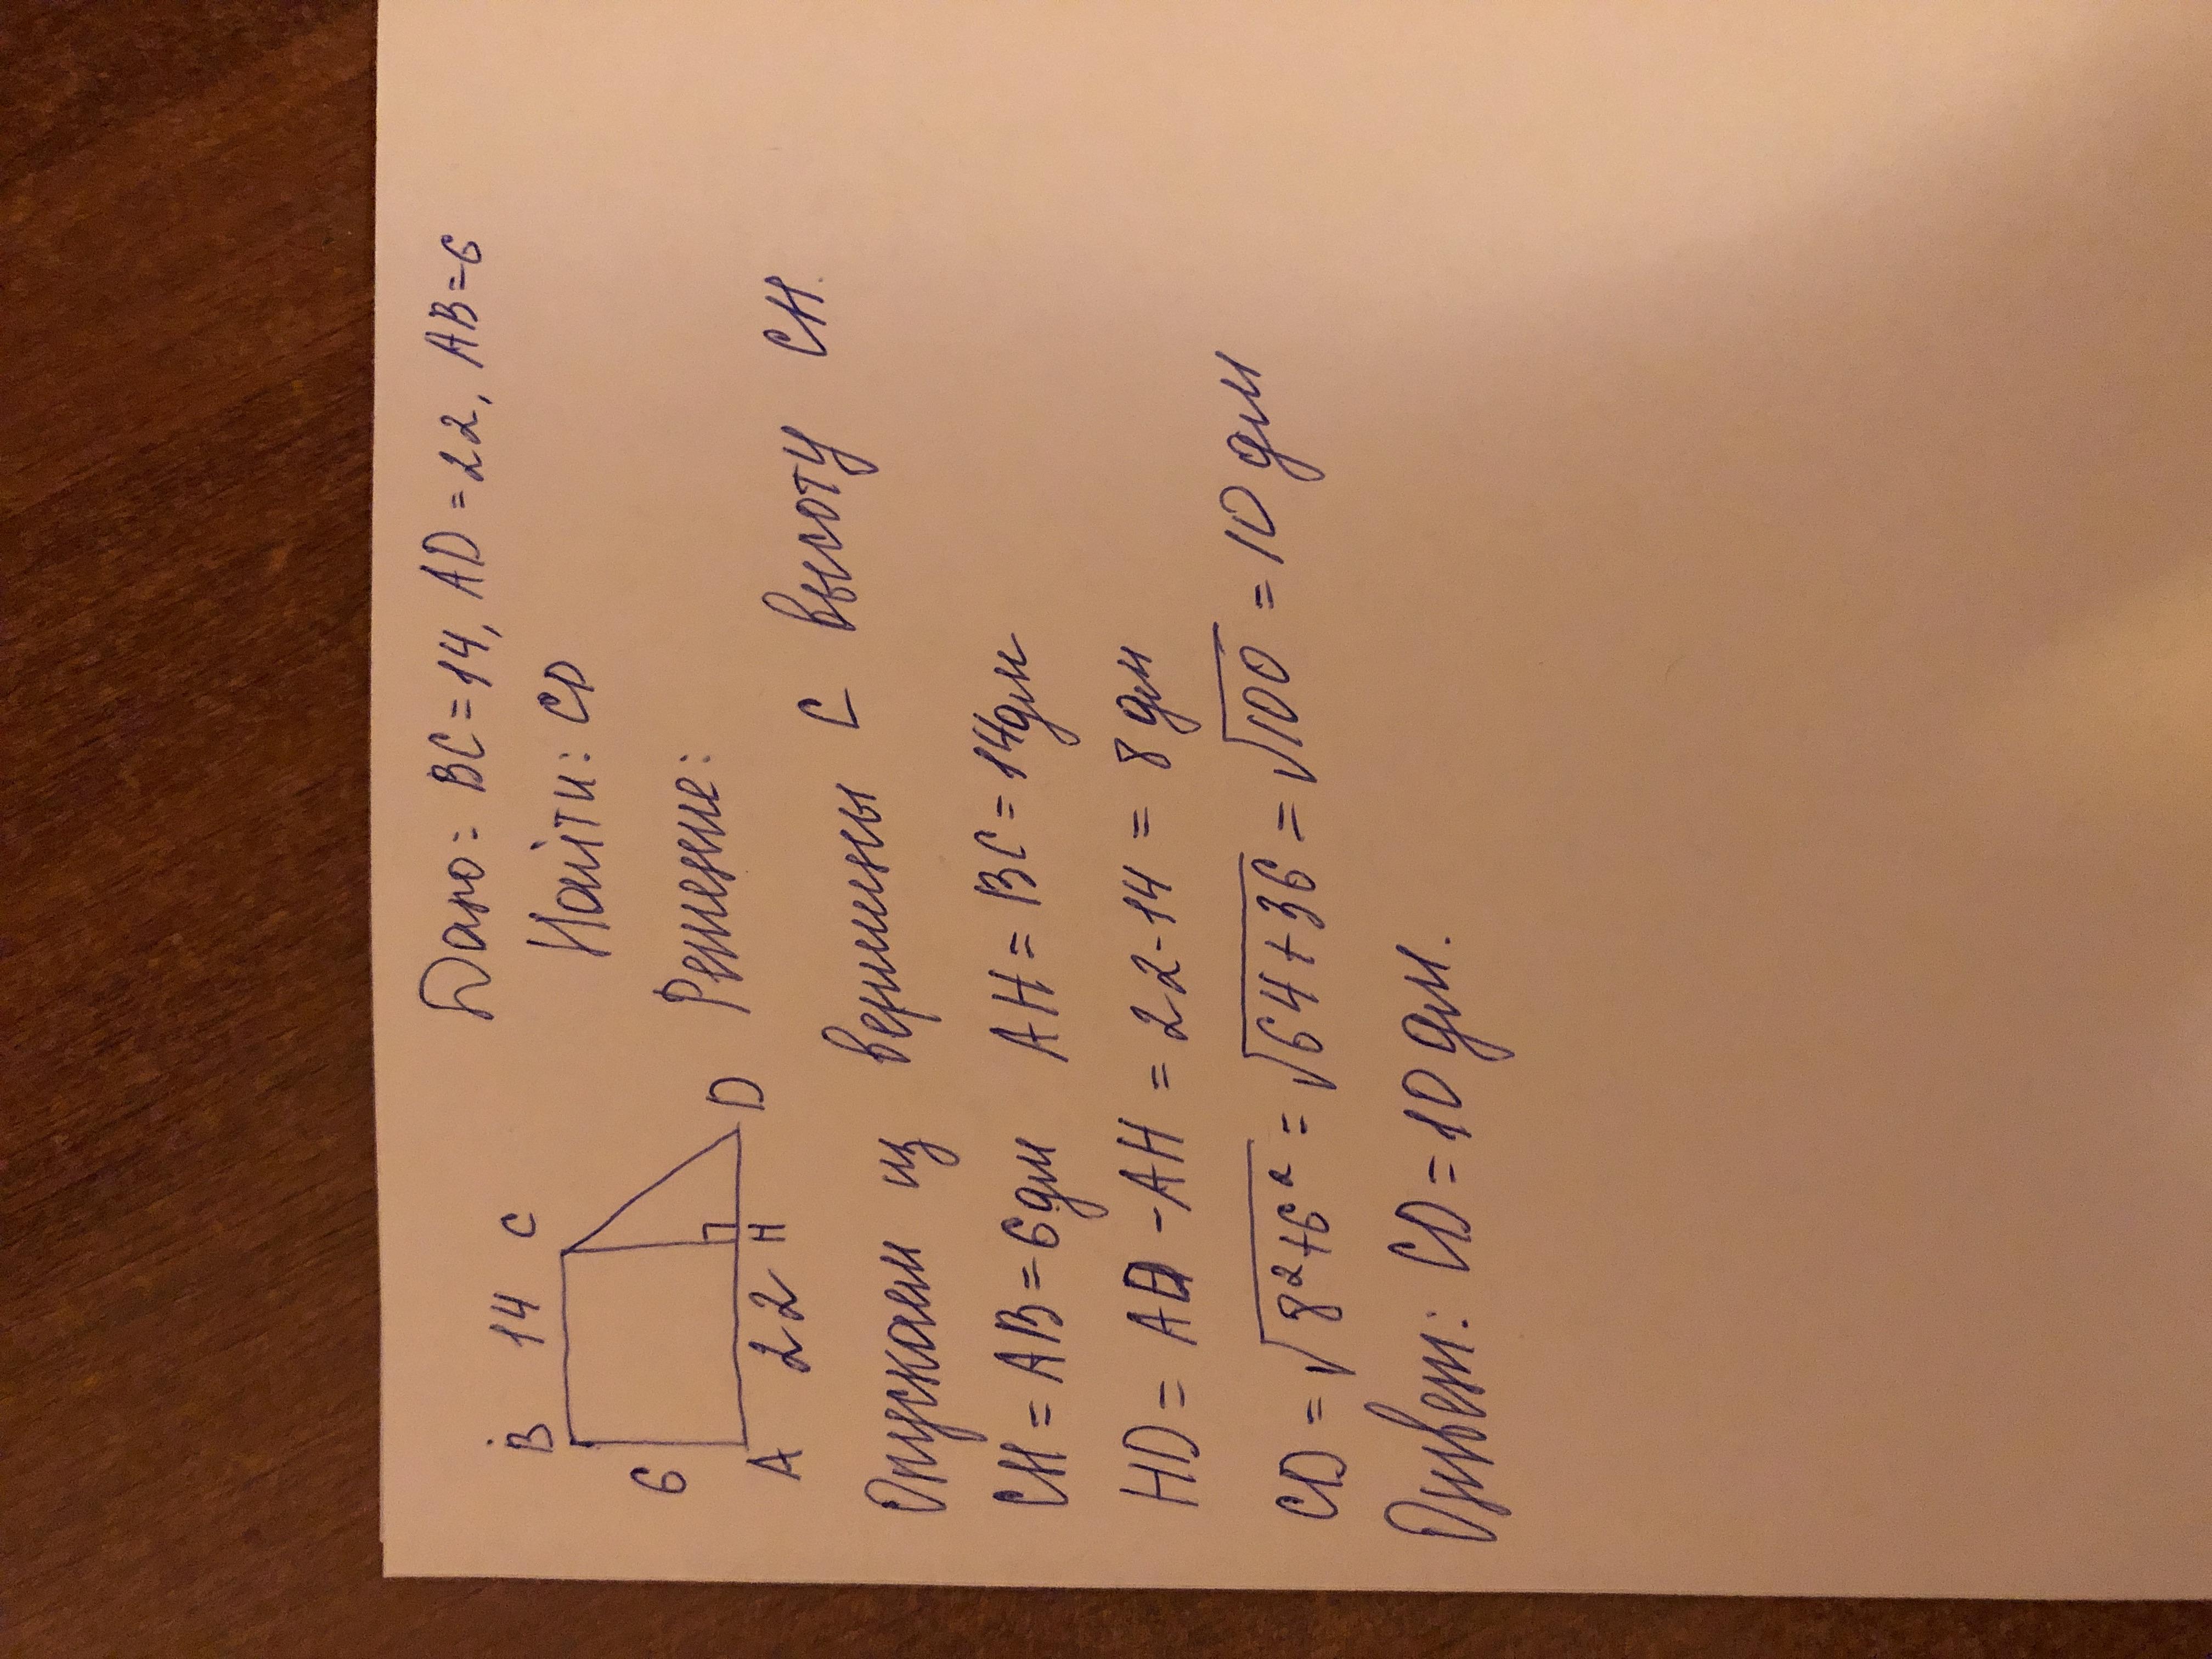 Дано: BC = 14, AD = 22, AB = 6
Найти: CD
Решение:
B 14 C
6
A 22 H D
Опускаем из вершины C высоту CH.
CH = AB = 6 дм AH = BC = 14 дм
HD = AD - AH = 22 - 14 = 8 дм
CD = √8² + 6² = √64 + 36 = √100 = 10 дм
Ответ: CD = 10 дм.